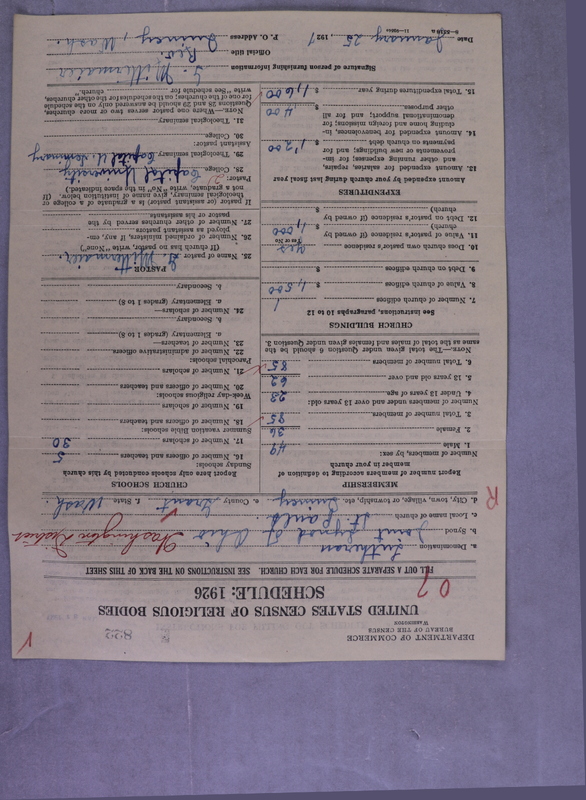 DEPARTMENT OF COMMERCE
BUREAU OF THE CENSUS
WASHINGTON
UNITED STATES CENSUS OF RELIGIOUS BODIES
SCHEDULE: 1926
FILL OUT A SEPARATE SCHEDULE FOR EACH CHURCH. SEE INSTRUCTIONS ON THE BACK OF THIS SHEET
a. Denomination Lutheran
b. Synod Joint Synod of Ohio Washington District
c. Local name of church St Paul's
d. City, town, village, or township, etc. Quincy e. County Grant f. State Wash.
MEMBERSHIP
Report number of members according to definition of
member in your church
Number of members, by sex:
1. Male 49
2. Female 36
3. Total number of members 85
Number of members under and over 13 years old:
4. Under 13 years of age 23
5. 13 years old and over 62
6. Total number of members 85
NOTE.—The total given under Question 6 should be the
same as the total of males and females given under Question 3.
CHURCH BUILDINGS
See instructions, paragraphs 10 to 12
7. Number of church edifices 1
8. Value of church edifices $ 4,500
9. Debt on church edifices $
10. Does church own pastor's residence Yes
Yes or No
11. Value of pastor's residence (if owned by
church) $ 1,000
12. Debt on pastor's residence (if owned by
church) $
EXPENDITURES
Amount expended by your church during last fiscal year
13. Amount expended for salaries, repairs,
and other running expenses; for im-
provements or new buildings; and for
payments on church debt $ 1,200
14. Amount expended for benevolences, in-
cluding home and foreign missions; for
denominational support; and for all
other purposes $ 400
15. Total expenditures during year $ 1,600
CHURCH SCHOOLS
Report here only schools conducted by this church
Sunday schools:
16. Number of officers and teachers 5
17. Number of scholars 30
Summer vacation Bible schools:
18. Number of officers and teachers
19. Number of scholars
Week-day religious schools:
20. Number of officers and teachers
21. Number of scholars
Parochial schools:
22. Number of administrative officers
23. Number of teachers—
a. Elementary (grades 1 to 8)
b. Secondary
24. Number of scholars—
a. Elementary (grades 1 to 8)
b. Secondary
PASTOR
25. Name of pastor G. Mittermaier
(If church has no pastor, write "None")
26. Number of ordained ministers, if any, em-
ployed as assistant pastors
27. Number of other churches served by the
pastor or his assistants
If pastor (or assistant pastor) is a graduate of a college or
theological seminary, give name of institution below. (If
not a graduate, write "No" in the space indicated.)
Pastor:
28. College Capital University
29. Theological seminary Capital U. Seminary
Assistant pastor:
30. College
31. Theological seminary
NOTE.—Where one pastor serves two or more churches,
Questions 28 and 29 should be answered only on the schedule
for one of the churches; on the schedules for the other churches,
write "See schedule for church."
Signature of person furnishing information G. Mittermaier
Official title Rev.
Date January 25, 1927 P. O. Address Quincy, Wash.